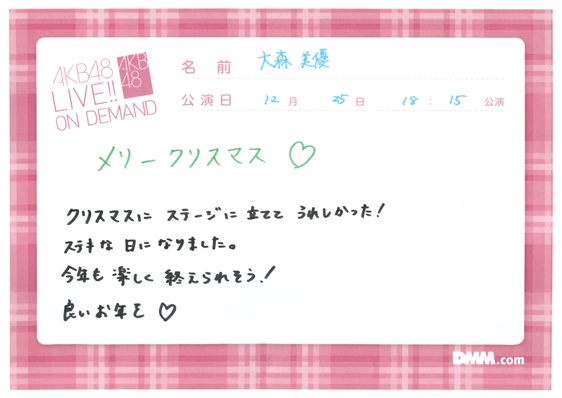 AKB48
LIVE!!
ON DEMAND
AKB
48
名前 大森 美優
公演日 12月 25日 18:15 公演
メリークリスマス ♡
クリスマスに ステージに 立てて うれしかった！
ステキな 日に なりました。
今年も 楽しく 終えられそう！
良いお年を ♡
DMM.com